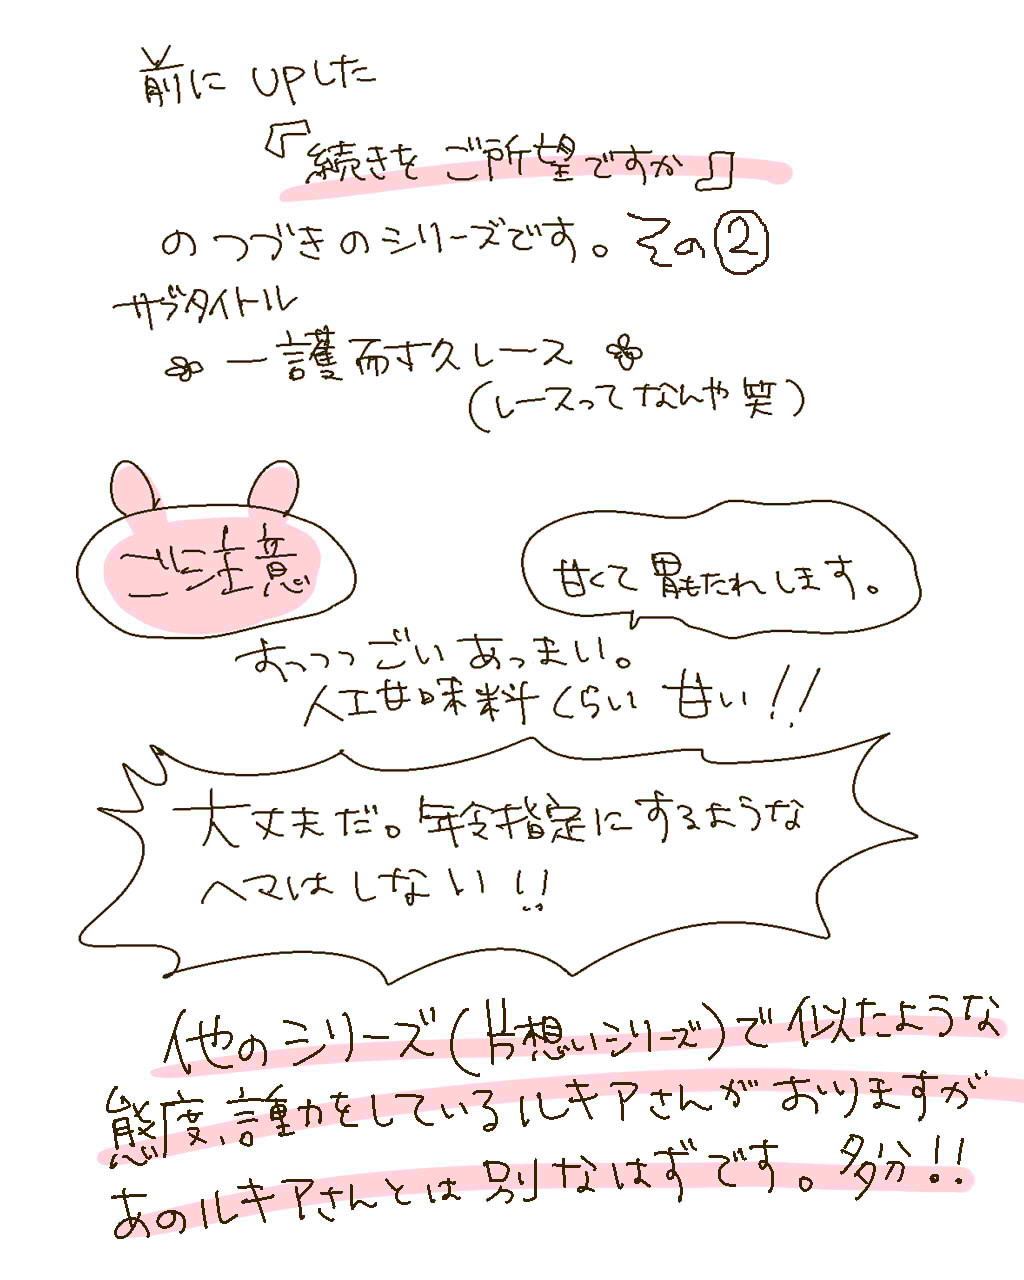 前にUPした
『続きをご所望ですか』
のつづきのシリーズです。その②
サブタイトル
一護耐久レース
(レースってなんや笑)
ご注意
甘くて胃もたれします。
すっっっごいあっまい。
人工甘味料くらい甘い!!
大丈夫だ。年齢指定にするような
ヘマはしない!!
他のシリーズ(片想いシリーズ)で似たような
態度、言動をしているルキアさんがおりますが
あのルキアさんとは別なはずです。多分!!